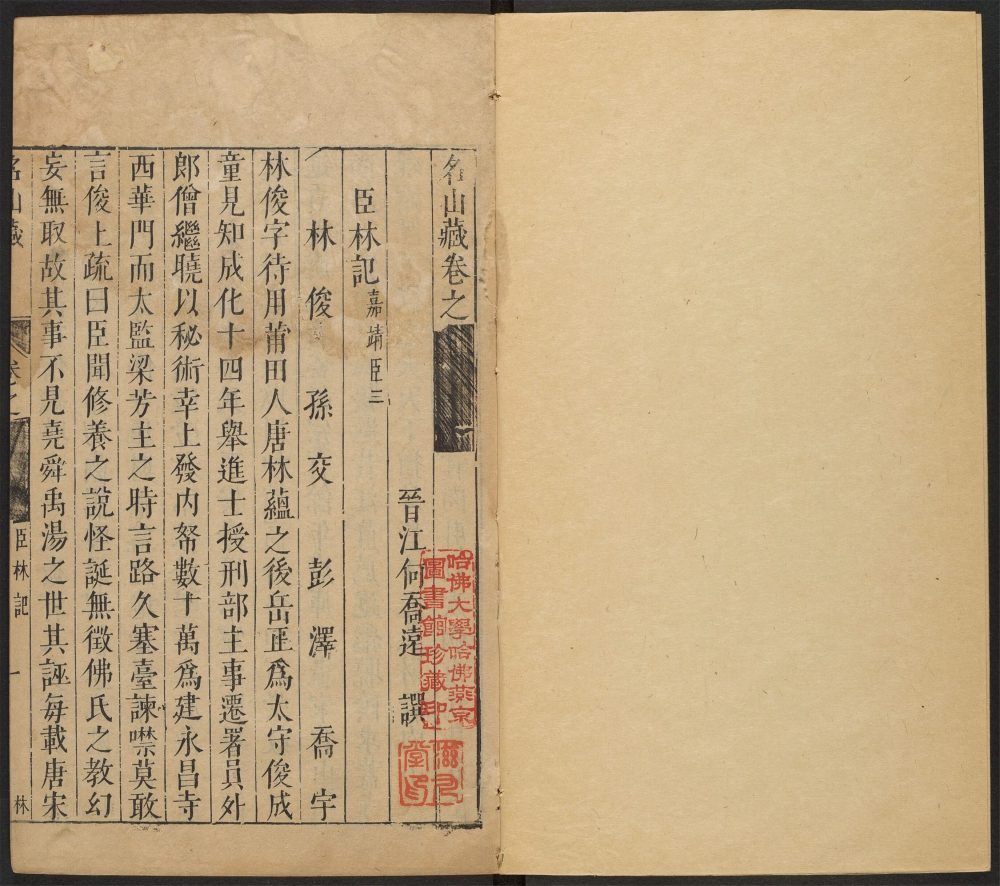 名山藏卷之
晉江何喬遠 譔
臣林記 嘉靖臣三
林俊 孫交 彭澤 喬宇
林俊字待用莆田人唐林蘊之後岳正爲太守俊成
童見知成化十四年舉進士授刑部主事遷署員外
郎僧繼曉以秘術幸上發内帑數十萬爲建永昌寺
西華門而太監梁芳主之時言路久塞臺諫噤莫敢
言俊上疏曰臣聞修養之說怪誕無徵佛氏之教幻
妄無取故其事不見堯舜禹湯之世其誣每載唐宋
名山藏 卷之 臣林記 一 林
哈佛大學哈佛燕京
圖書館珍藏印